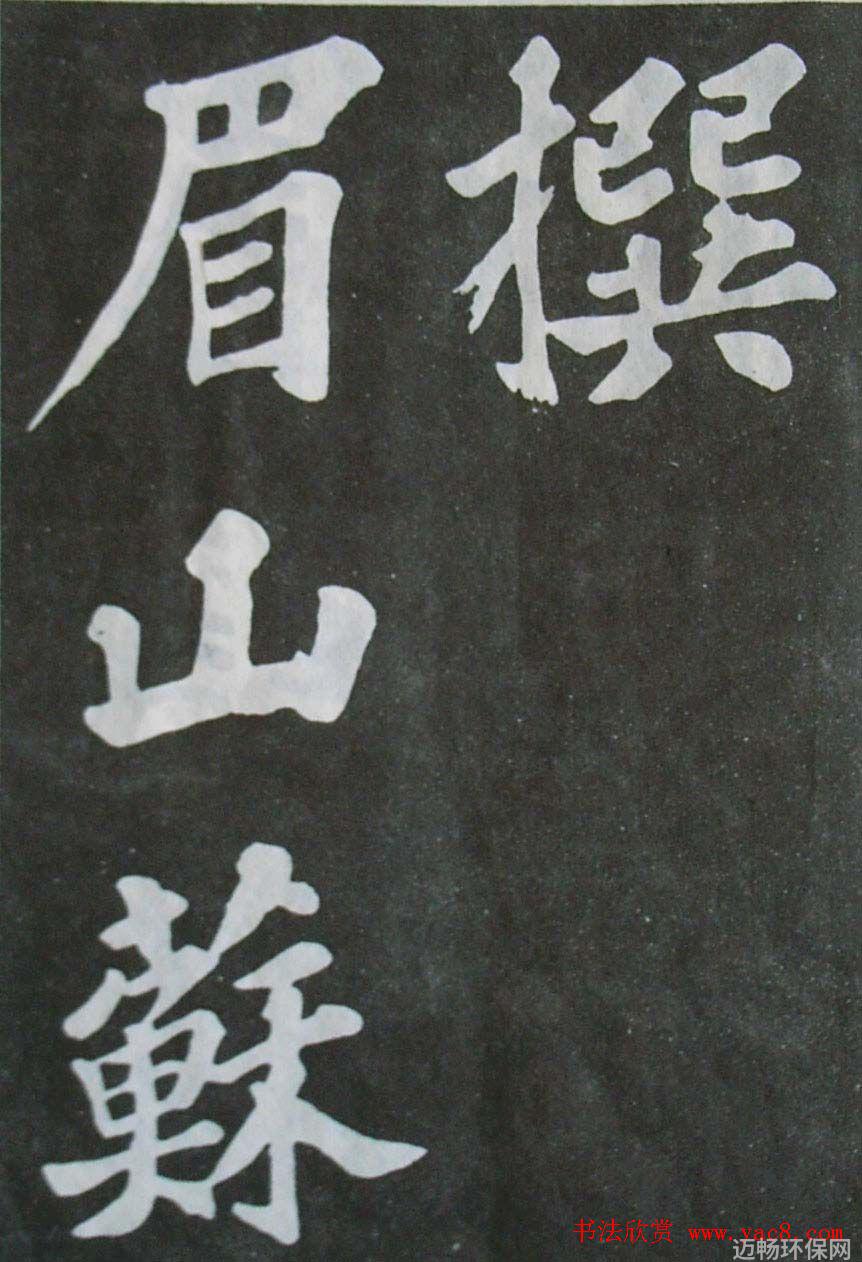 撰
眉山蘇
书法欣赏 www.yac8.com
迈畅环保网